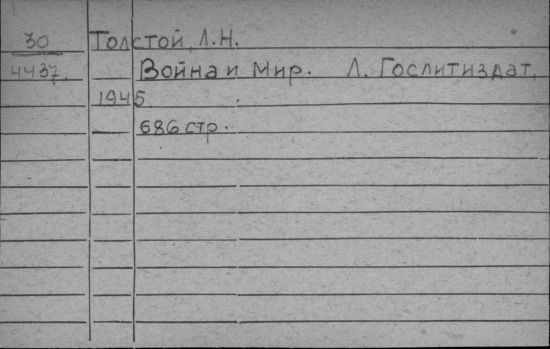 30 Толстой, Л.Н.
4437. Война и Мир. Л. Гослитиздат,
1945
686 стр.